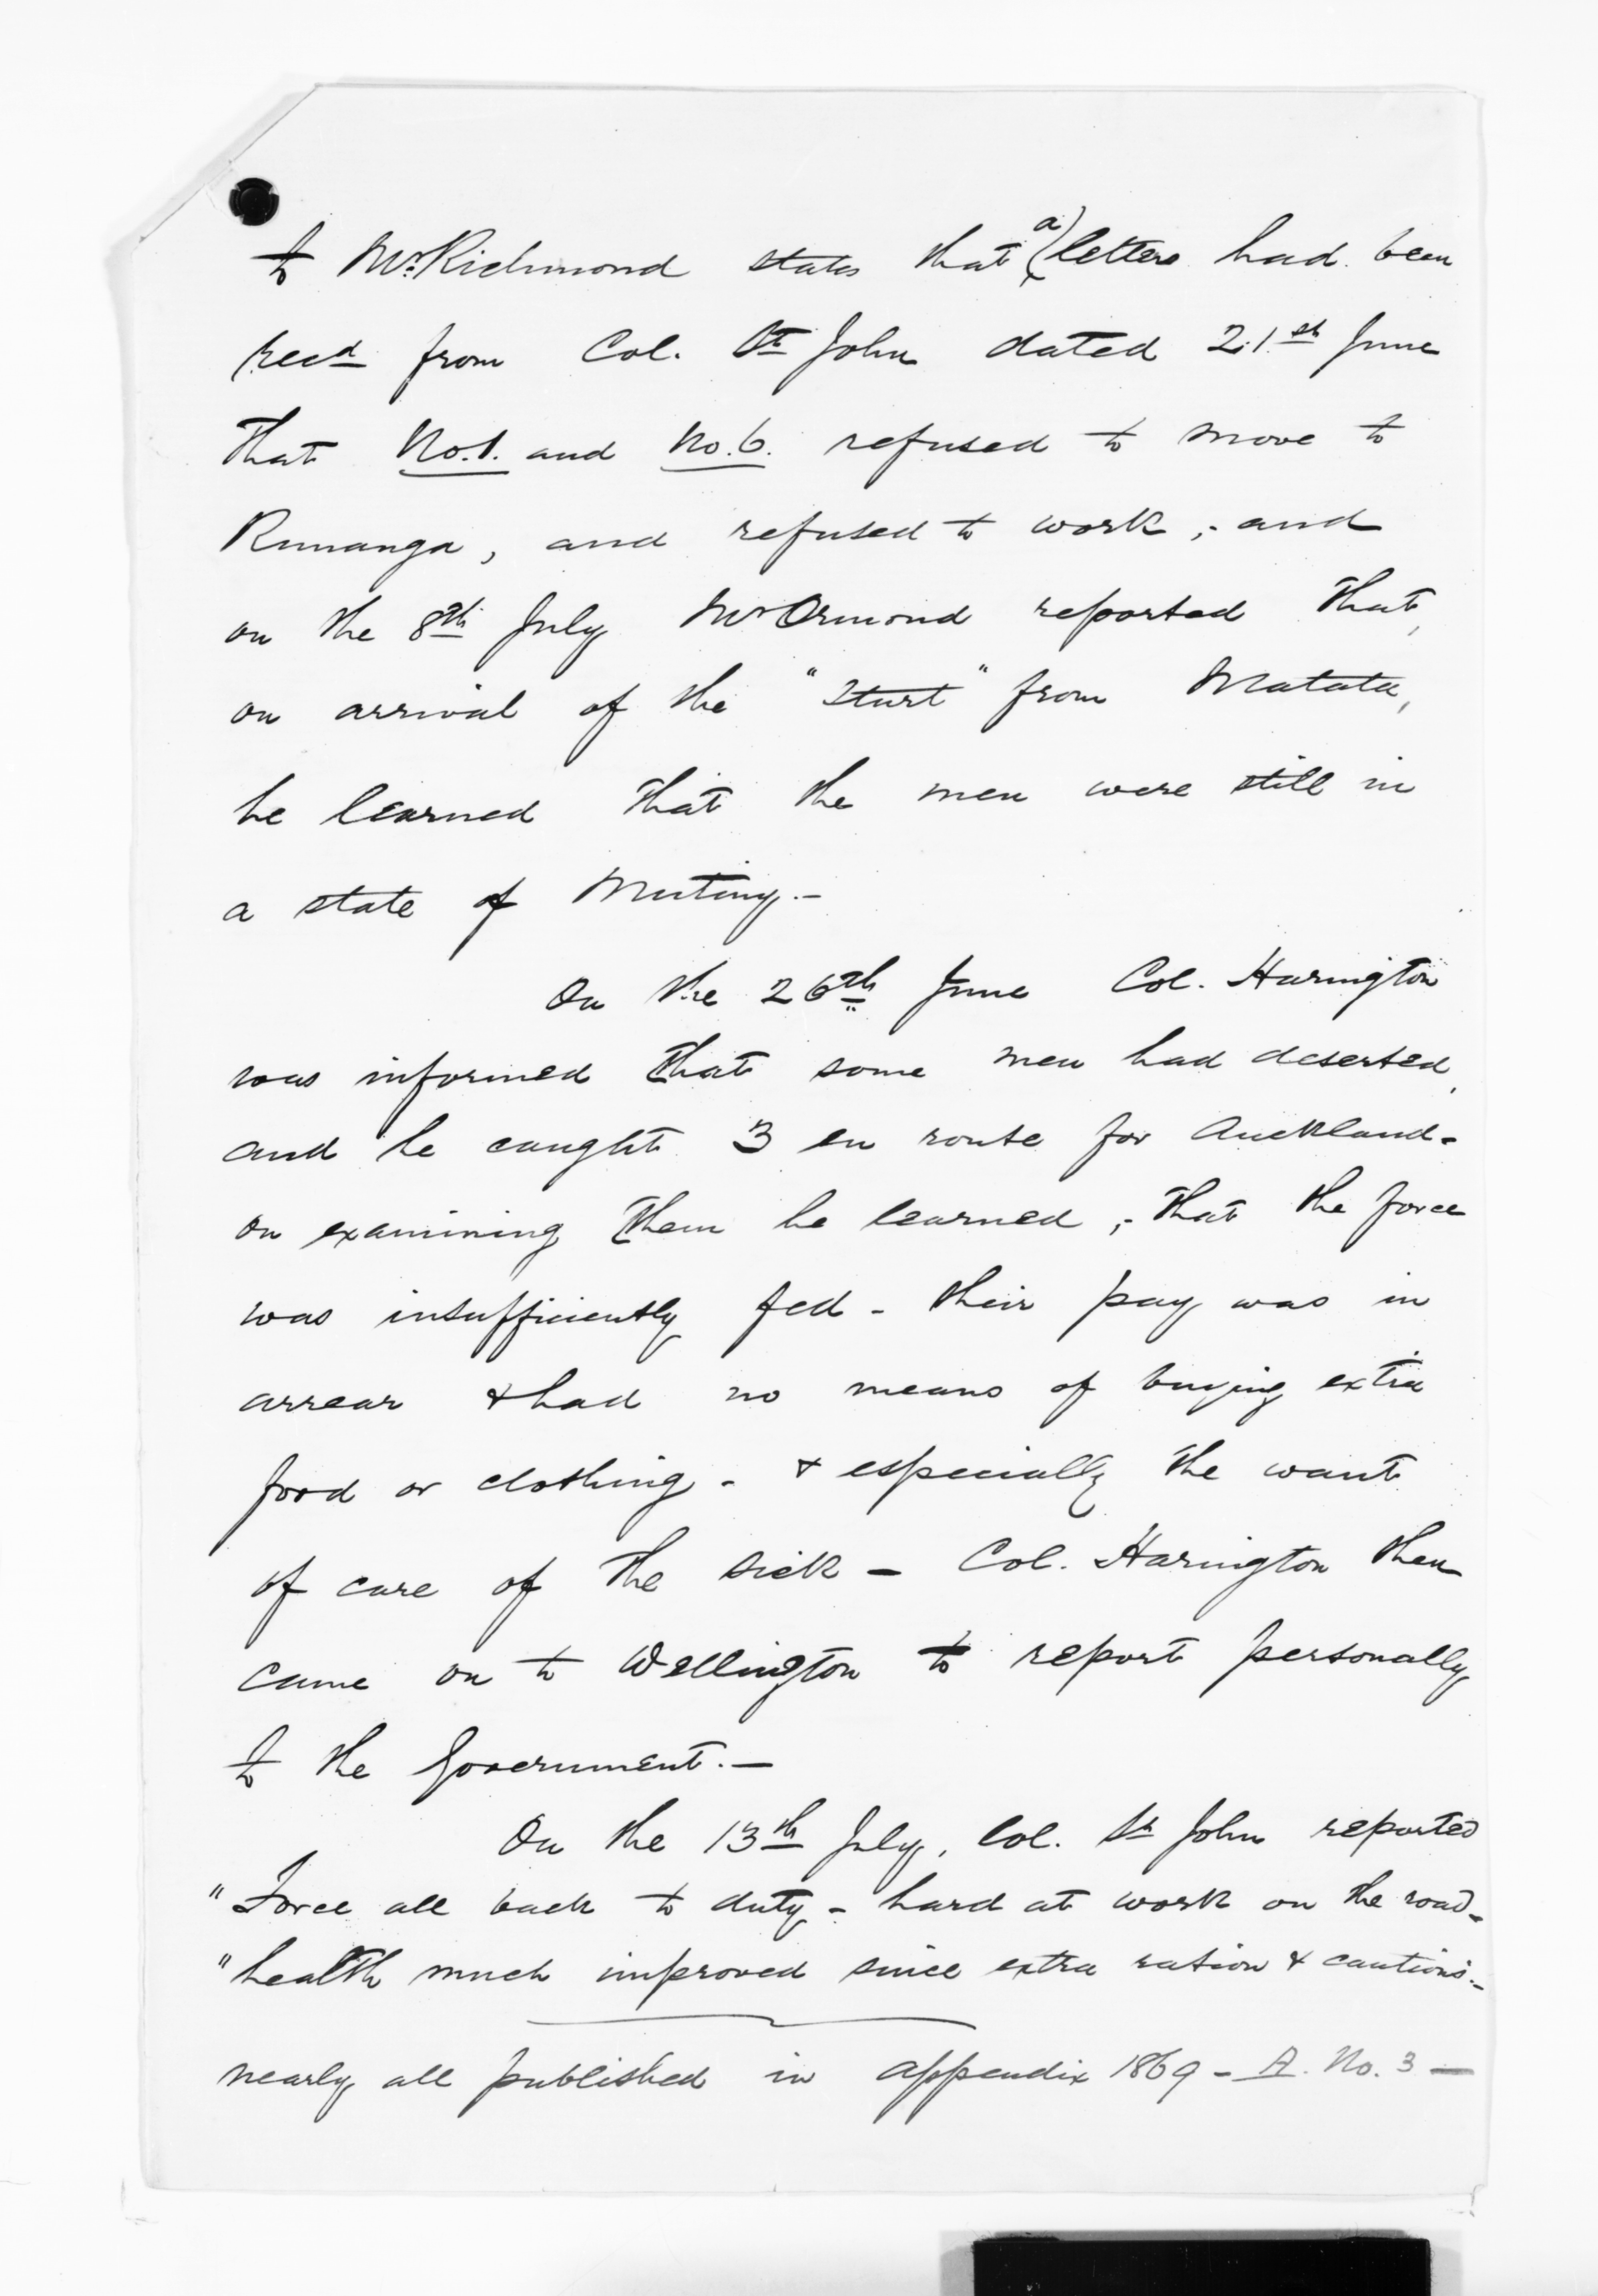 to Mr. Richmond states that a letters had been
recd from Col. St John dated 21st June
that No.1. and No.6. refused to move to
Runanga, and refused to work,- and
on the 8th July Mr Ormond reported that,
on arrival of the "Sturt" from Matata,
he learned that the men were still in
a state of Mutiny.-
On the 26th June Col. Harington
was informed that some men had deserted,
and he caught 3 en route for Auckland-
on examining them he learned,- that the force
was insufficiently fed - their pay was in
arrear & had no means of buying extra
food or clothing - & especially the want
of care of the sick - Col. Harington then
came on to Wellington to report personally
to the Government.-
On the 13th July, Col. St John reported
"Force all back to duty - hard at work on the road-
"health much improved since extra ration & cautions.-
nearly all published in appendix 1869 - A. No. 3 -